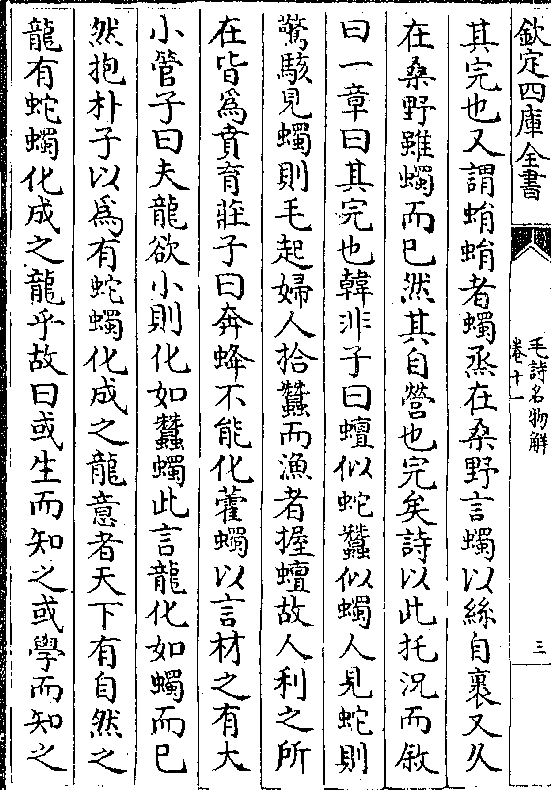 欽定四庫全書
毛詩名物解
卷十一
三
其完也又謂蜎蜎者蠋烝在桑野言蠋以絲自裹又久
在桑野雖蠋而已然其自營也完矣詩以此托況而敘
曰一章曰其完也韓非子曰蟺似蛇蠶似蠋人見蛇則
驚駭見蠋則毛起婦人拾蠶而漁者握蟺故人利之所
在皆為賁育莊子曰奔蜂不能化藿蠋以言材之有大
小管子曰夫龍欲小則化如蠶蠋此言龍化如蠋而已
然抱朴子以為有蛇蠋化成之龍意者天下有自然之
龍有蛇蠋化成之龍乎故曰或生而知之或學而知之